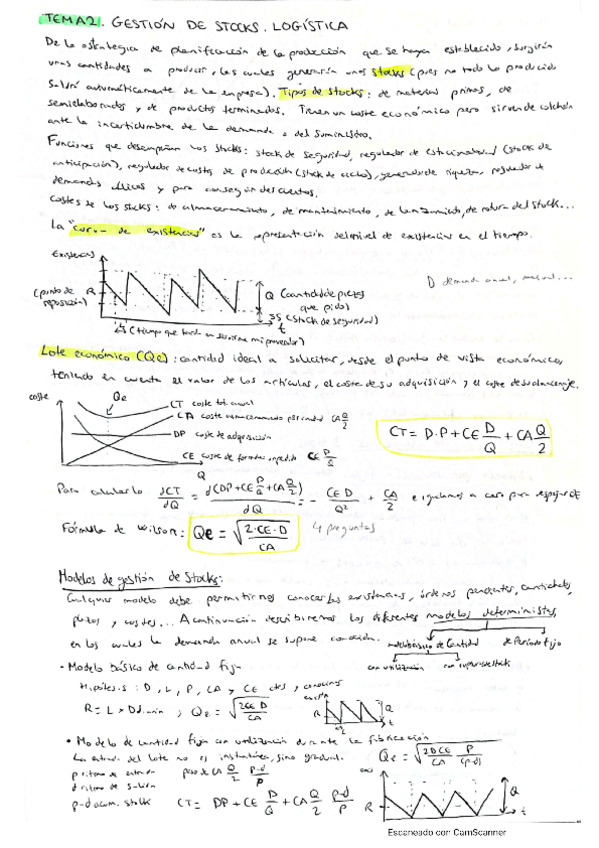 TEMA 2. GESTIÓN DE STOCKS. LOGÍSTICA
De la estrategia de planificación de la producción que se haya establecido, surgirán
unas cantidades a producir, las cuales generarán unos stocks (pues no todo lo producido
saldrá automáticamente de la empresa). Tipos de stocks: de materias primas, de
semielaborados y de productos terminados. Tienen un coste económico pero sirven de colchón
ante la incertidumbre de la demanda o del suministro.
Funciones que desempeñan los stocks: stock de seguridad, regulador de estacionalidad (stock de
anticipación), regulador de costes de producción (stock de ciclo), generador de riqueza,
demandas y para conseguir descuentos.
Costes de los stocks: de almacenamiento, de mantenimiento, de lanzamiento, de rotura del stock...
La "curva de existencias" es la representación del nivel de existencias en el tiempo.
Existencias
D demanda anual, mensual...
(punto de R
reposición)
Q (cantidad de piezas
que pido)
SS (stock de seguridad)
t
(tiempo que tarda en servirme mi proveedor)
Lote económico (Qe): cantidad ideal a solicitar, desde el punto de vista económico,
teniendo en cuenta el valor de los artículos, el coste de su adquisición y el coste de su almacenaje.
coste
Qe
CT coste tot. anual
CA coste almacenamiento por unidad CA Q/2
DP coste de adquisición
CE coste de formular un pedido CE D/Q
Q
CT = D·P + CE D/Q + CA Q/2
Para calcularlo dCT/dQ = d(DP+CE D/Q +CA Q/2)/dQ = - CE D/Q² + CA/2 e igualamos a cero para despejar Qe
Fórmula de Wilson: Qe = √(2·CE·D/CA) 4 preguntas
Modelos de gestión de stocks:
Cualquier modelo debe permitirnos conocer las existencias, órdenes pendientes, cantidades,
plazos y costes... A continuación describiremos los diferentes modelos deterministas,
en los cuales la demanda anual se supone conocida.
de Cantidad de Período fijo
con utilización con ruptura de stock
• Modelo básico de cantidad fija
Hipótesis: D, L, P, CA y CE ctes y conocidas
R = L × D ; Qe = √(2CE D/CA)
R Q t
• Modelo de cantidad fija con utilización durante la fabricación
La entrada del lote no es instantánea, sino gradual. Qe = √(2DCE/CA · P/(p-d))
p ritmo de entrada CA Q/2 p-d/p
d ritmo de salida
p-d acum. stock CT = DP + CE D/Q + CA Q/2 p-d/p
R Q t
Escaneado con CamScanner